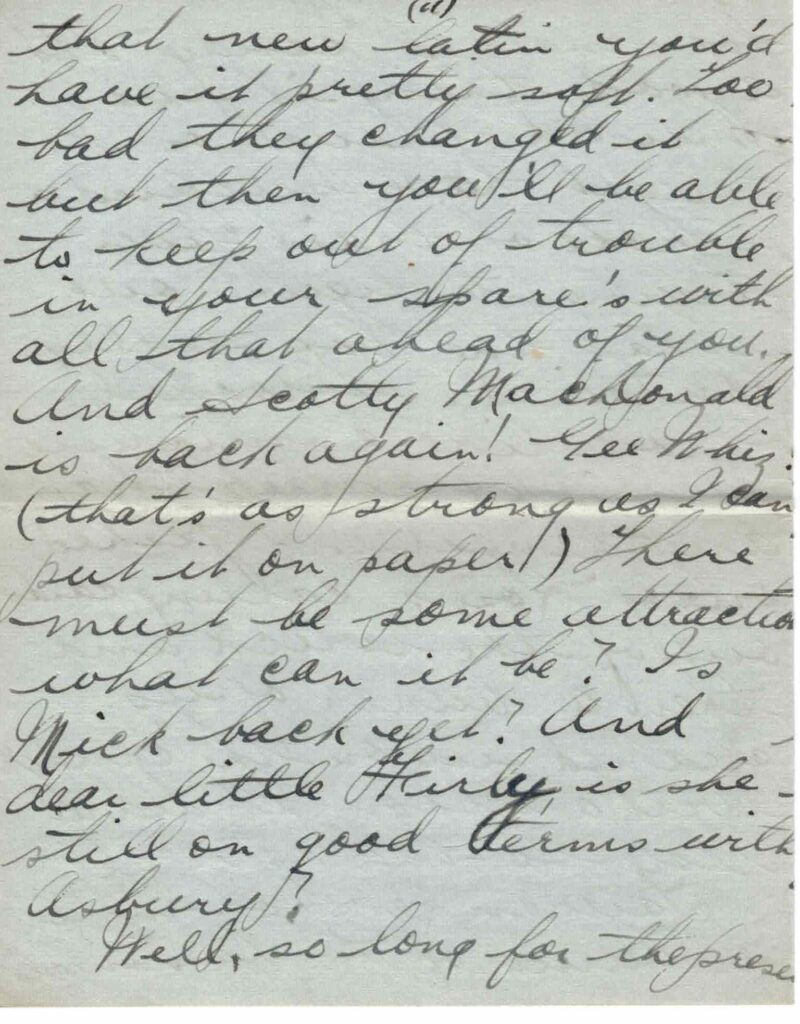 that new latin you'd
have it pretty soft. Too
bad they changed it
but then you'll be able
to keep out of trouble
in your spare's with
all that ahead of you.
And Scotty MacDonald
is back again! Gee Whiz.
(that's as strong as I can
put it on paper) There
must be some attractio
what can it be? Is
Mick back yet? And
dear little is she
still on good terms with
Asbury?
Well, so long for the prese